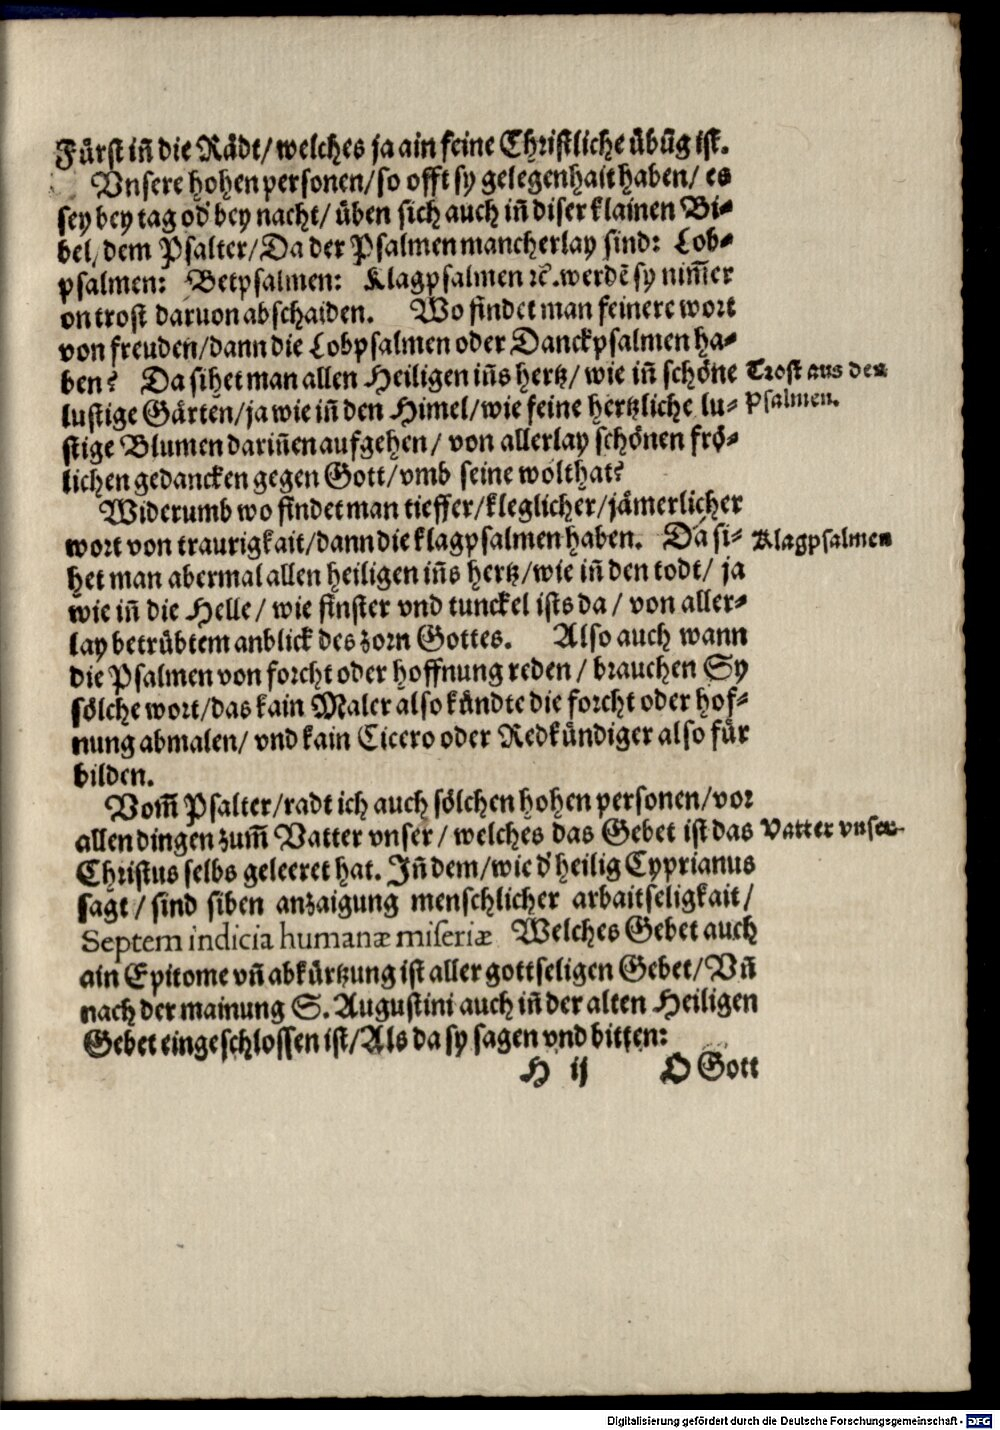 Fürst iñ die Rädt/ welches ja ain feine Christliche übũg ist.
Vnsere hohen personen/ so offt sy gelegenhait haben/ es
sey bey tag od' bey nacht/ üben sich auch iñ diser klainen Bi⸗
bel/ dem Psalter/ Da der Psalmen mancherlay sind: Lob⸗
psalmen: Betpsalmen: Klagpsalmen ꝛc̃. werdẽ sy nim̃er
on trost daruon abschaiden. Wo findet man feinere wort
von freuden/ dann die Lobpsalmen oder Danckpsalmen ha⸗
ben? Da sihet man allen Heiligen iñs hertz/ wie iñ schöne
Trost aus den
lustige Gärten/ ja wie iñ den Himel/ wie feine hertzliche lu⸗
Psalmen.
stige Blumen dariñen aufgehen/ von allerlay schönen frö⸗
lichen gedancken gegen Gott/ vmb seine wolthat?
Widerumb wo findet man tieffer/ kleglicher/ jämerlicher
wort von traurigkait/ dann die klagpsalmen haben. Da si⸗
Klagpsalmen
het man abermal allen heiligen iñs hertz/ wie iñ den todt/ ja
wie iñ die Helle/ wie finster vnd tunckel ists da/ von aller⸗
lay betrübtem anblick des zorn Gottes. Also auch wann
die Psalmen von forcht oder hoffnung reden/ brauchen Sy
sölche wort/ das kain Maler also kündte die forcht oder hof⸗
nung abmalen/ vnd kain Cicero oder Redkündiger also für
bilden.
Vom̃ Psalter/ radt ich auch sölchen hohen personen/ vor
allen dingen zum̃ Vatter vnser/ welches das Gebet ist das
Vatter vnser.
Christus selbs geleeret hat. Iñ dem/ wie d' heilig Cyprianus
sagt/ sind siben anzaigung menschlicher arbaitseligkait/
Septem indicia humanæ miseriæ Welches Gebet auch
ain Epitome vñ abkürtzung ist aller gottseligen Gebet/ Vñ
nach der mainung S. Augustini auch iñ der alten Heiligen
Gebet eingeschlossen ist/ Als da sy sagen vnd bitten:
H ij O Gott
Digitalisierung gefördert durch die Deutsche Forschungsgemeinschaft - DFG